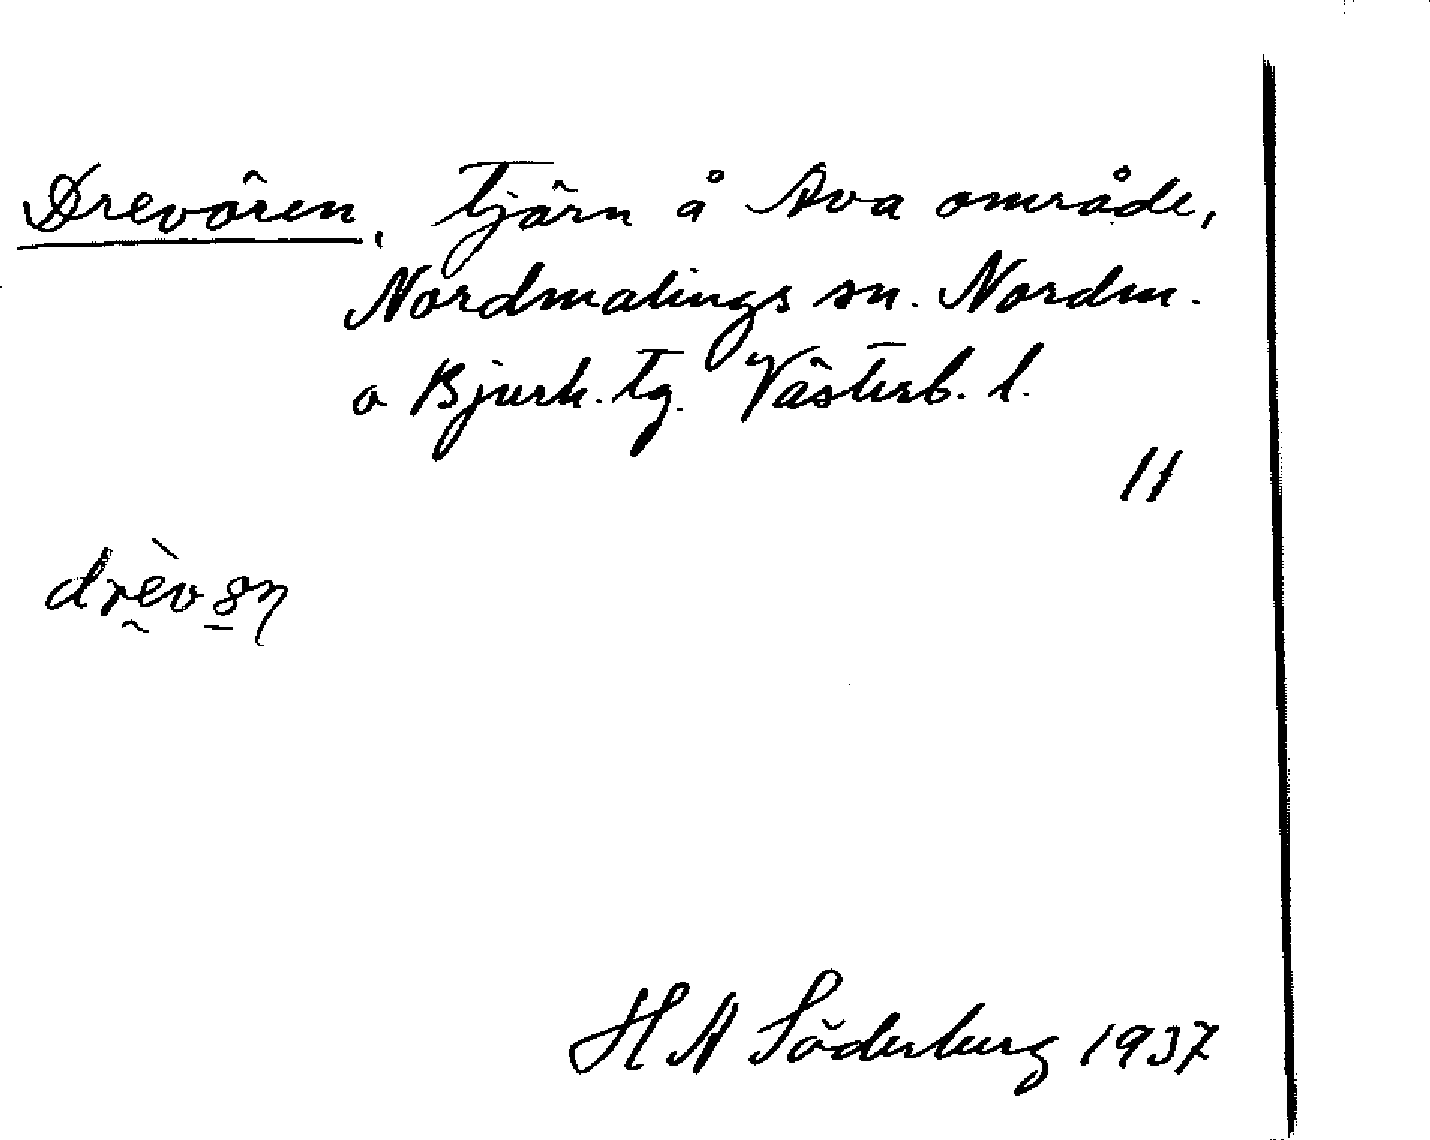 Drevören, Tjärn å Ava område,
Nordmalings sn. Nordm.
o Bjurh. tg. Västerb. l.
11
H A Söderberg 1937